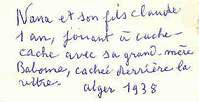 Nana et son fils Claude
1 an, jouant à cache-
cache avec sa grand-mère
Babome, cachée derrière la
vitre.
alger 1938